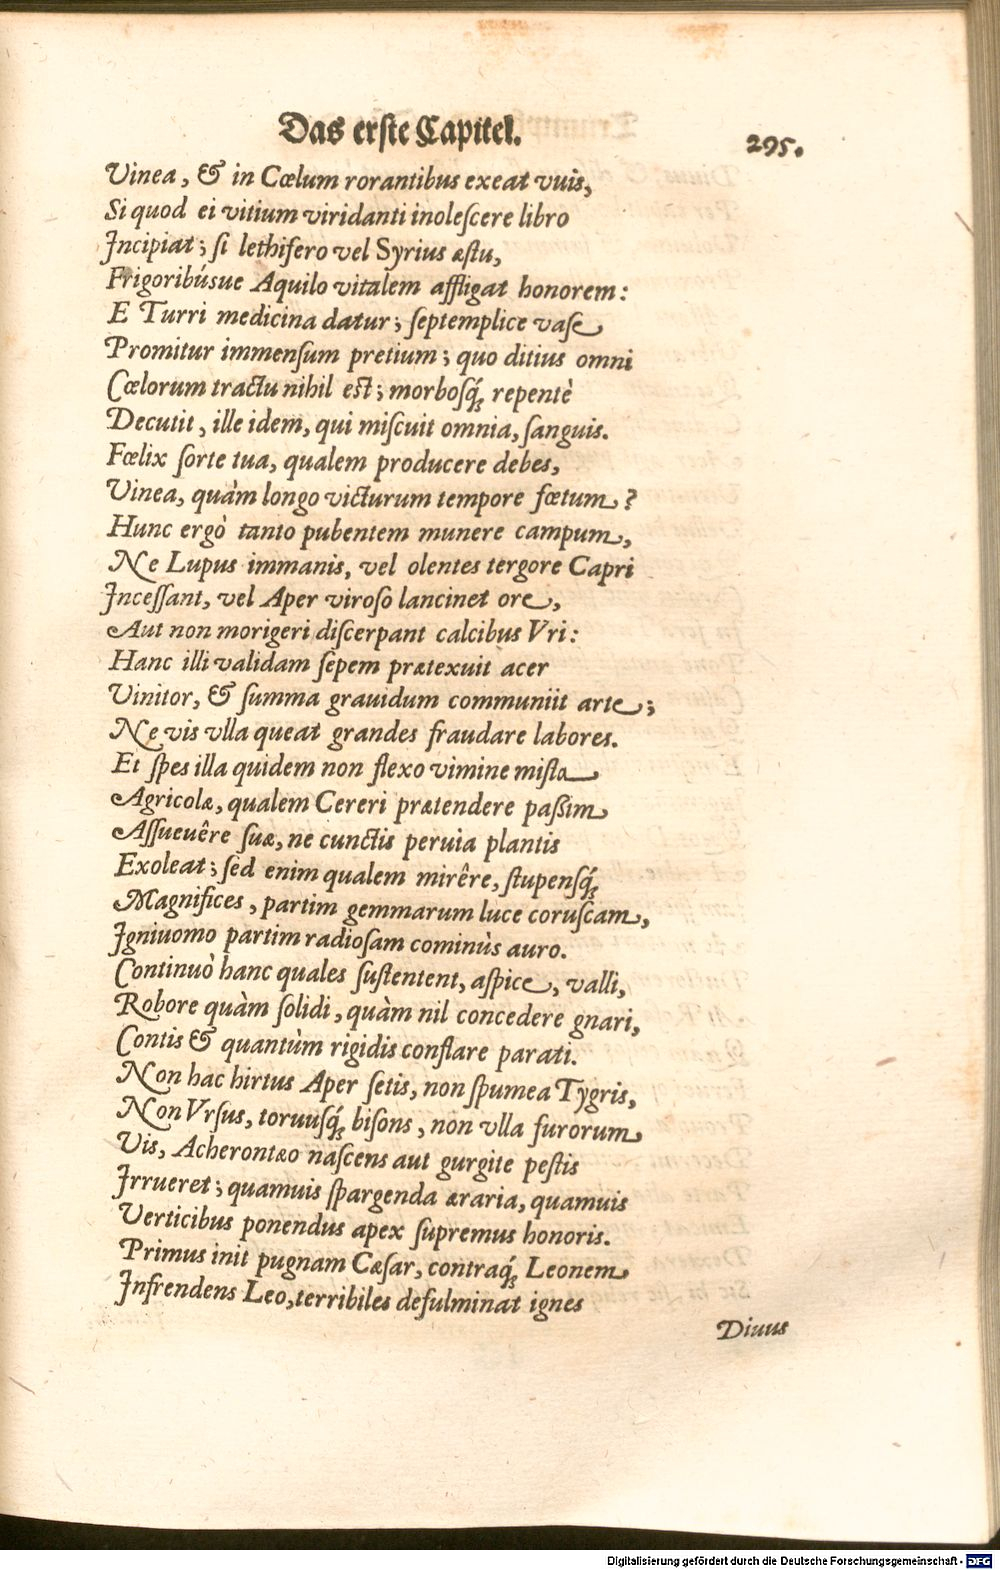 Das erste Capitel.
295.
Vinea, & in Cœlum rorantibus exeat vuis,
Si quod ei vitium viridanti inolescere libro
Incipiat; si lethifero vel Syrius æstu,
Frigoribúsue Aquilo vitalem affligat honorem:
E Turri medicina datur; septemplice vase
Promitur immensum pretium; quo ditius omni
Cœlorum tractu nihil est; morbosq́; repentè
Decutit, ille idem, qui miscuit omnia, sanguis.
Fœlix sorte tua, qualem producere debes,
Vinea, quàm longo victurum tempore fœtum?
Hunc ergò tanto pubentem munere campum,
Ne Lupus immanis, vel olentes tergore Capri
Incessant, vel Aper viroso lancinet ore,
Aut non morigeri discerpant calcibus Vri:
Hanc illi validam sepem prætexuit acer
Vinitor, & summa grauidum communiit arte;
Ne vis vlla queat grandes fraudare labores.
Et spes illa quidem non flexo vimine mista
Agricolæ, qualem Cereri prætendere paßim
Assueuêre suæ, ne cunctis peruia plantis
Exoleat; sed enim qualem mirêre, stupensq́;
Magnifices, partim gemmarum luce coruscam,
Igniuomo partim radiosam cominùs auro.
Continuò hanc quales sustentent, aspice, valli,
Robore quàm solidi, quàm nil concedere gnari,
Contis & quantùm rigidis conflare parati.
Non hac hirtus Aper setis, non spumea Tygris,
Non Vrsus, toruusq́; bisons, non vlla furorum
Vis, Acherontæo nascens aut gurgite pestis
Irrueret; quamuis spargenda æraria, quamuis
Verticibus ponendus apex supremus honoris.
Primus init pugnam Cæsar, contraq́; Leonem
Infrendens Leo, terribiles defulminat ignes
Diuus
Digitalisierung gefördert durch die Deutsche Forschungsgemeinschaft - DFG